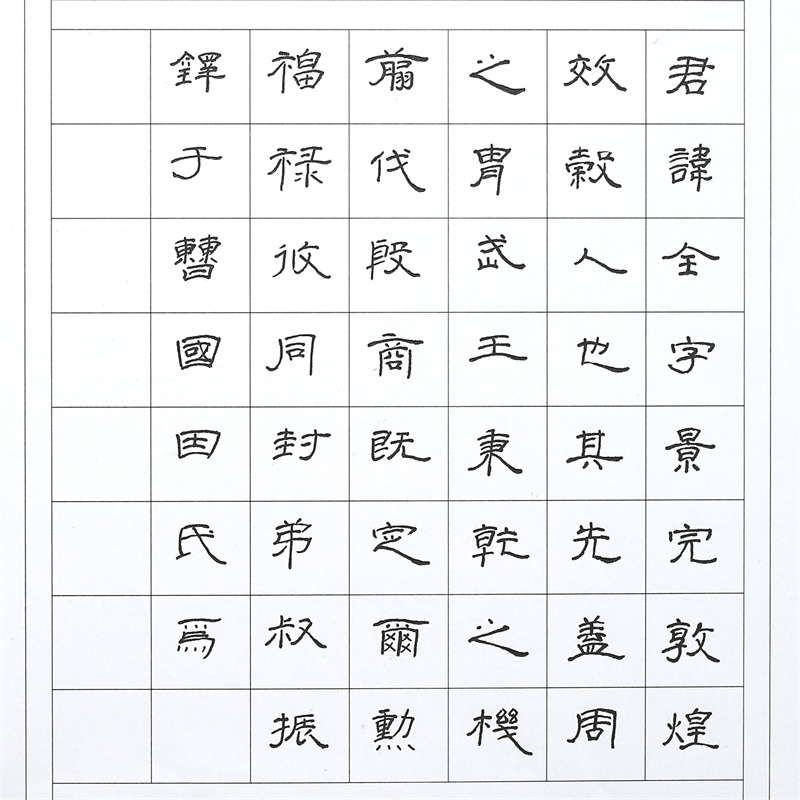 君諱全字景完敦煌
效穀人也其先蓋周
之胄武王秉乾之機
翦伐殷商既定爾勳
福祿攸同封弟叔振
鐸于曹國因氏焉